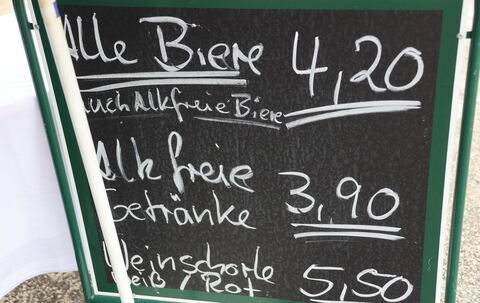 Alle Biere 4,20
auch Alkfreie Biere
Alkfreie
Getränke 3,90
Weinschorle
Weiß / Rot 5,50